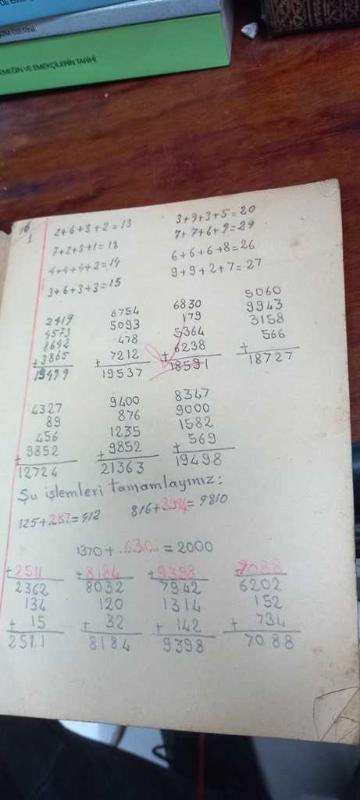 EMEĞİN VE EMEKÇİLERİN TARİHİ
2+6+3+2=13
3+9+3+5=20
7+2+8+1=18
7+7+6+9=29
4+4+4+2=14
6+6+6+8=26
3+6+3+3=15
9+9+2+7=27
2419 6754 6830 5060
4573 5093 179 9943
8642 478 5364 3158
+3865 +7212 +6238 +566
19499 19537 18591 18727
4327 9400 8347
89 876 9000
456 1235 1582
+9852 +9852 +569
12724 21363 19498
Şu işlemleri tamamlayınız:
125+287=412 816+8994=9810
1370+.630.=2000
+2511 +8184 +9398 7088
2362 8032 7942 6202
134 120 1314 152
+15 +32 +142 +734
2511 8184 9398 7088